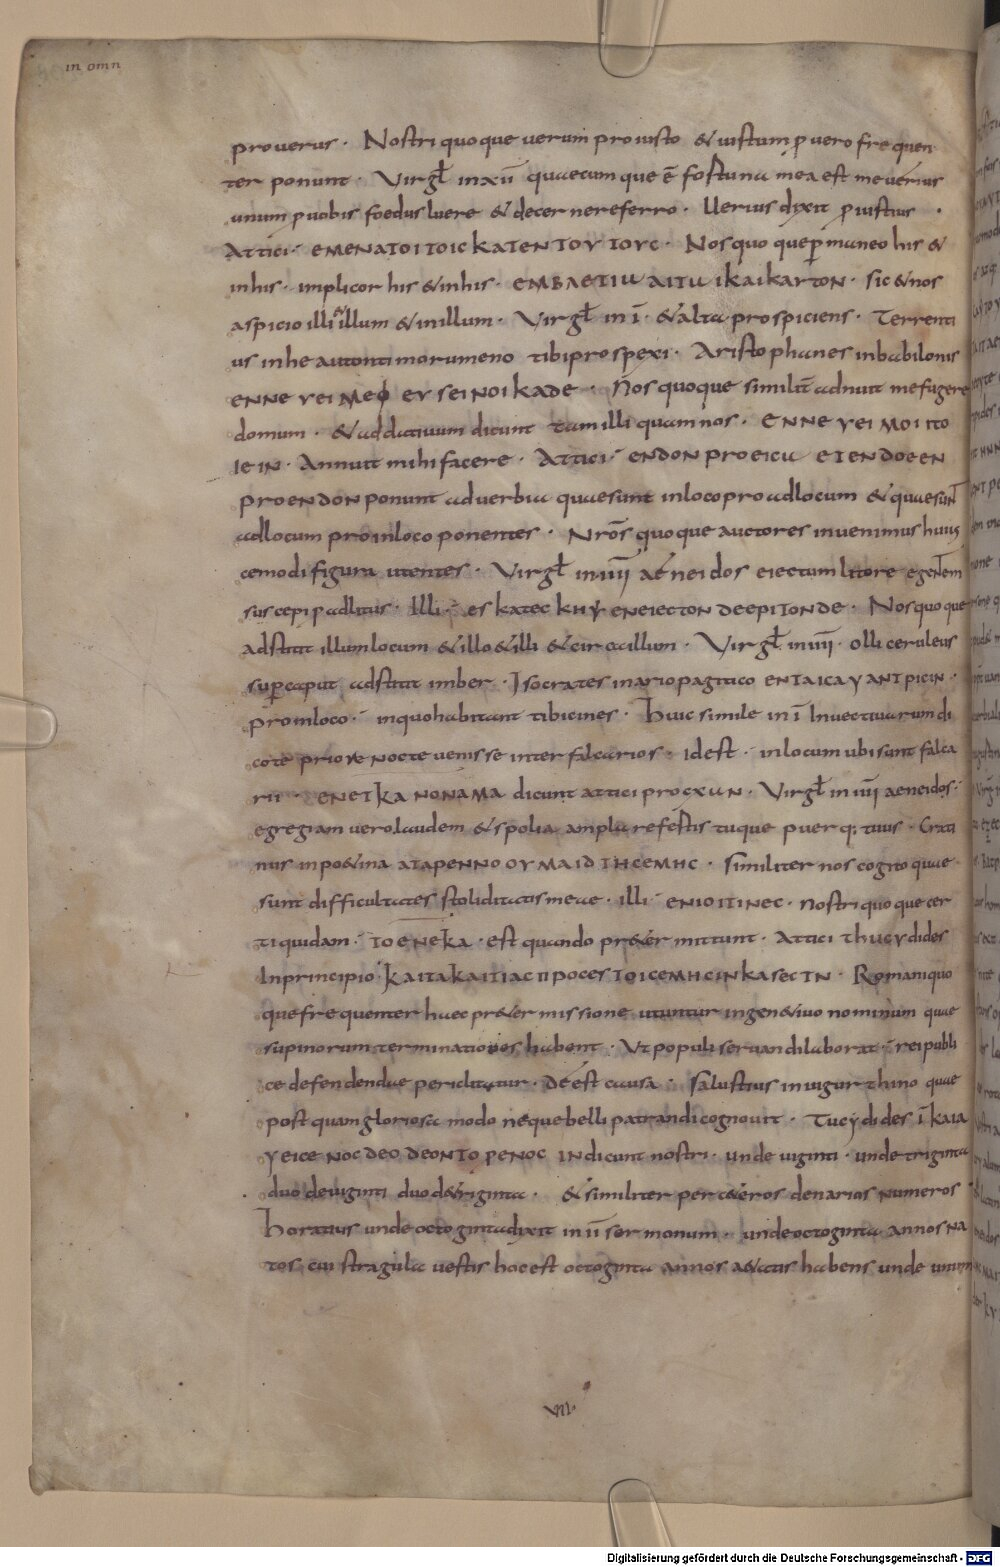 in omn
proverus · Nostri quoque verum pro iusto & iustum p vero frequen
ter ponunt · Virgł in xii quaecumque ē fortuna mea est me verius
unum p vobis foedus luere & decernere ferro · Uerius dixit p iustius ·
Attici · EMENATOITOIC KATENTOYTOYC · Nos quoque pmaneo his &
in his · implicor his & in his · EMBAETIU AITU IKAIKARTON · sic & nos
aspicio illi illum & in illum · Virgł in ī · & alta prospiciens · Terrenti
us in heautontimorumeno tibi prospexi · Aristophanes in babilonis
ENNE YEI MEO EY SEI NOI KADE · Nos quoque similit adnuit me fugere
domum · & addativum dicunt tam illi quam nos · ENNE YEI MOI ITO
IEIN · Annuit mihi facere · Attici · ENDON PROEICU EIENDOEEN
PROENDON ponunt adverbia quae sunt in loco pro ad locum & quae sunt
ad locum pro in loco ponentes · Nrōs quoque auctores invenimus huius
cemodi figura utentes · Virgł in iiii aeneidos eiectum litore egentem
suscepi p ad litus · Illi · ES KATEC KHY ENEIECTON DEEPITONDE · Nos quoque
adstitit illum locum & illo & illi & circa illum · Virgł in iiii · olli ceruleus
supcaput adstitit imber · Isocrates in ariopagitico ENTAICAYANTPICIN ·
pro in loco · in quo habitant tibicines · Huic simile in ī Invectivarum di
cotē priore nocte venisse inter falcarios · idest · in locum ubi sunt falca
rii · ENEIKA NONAMA dicunt attici pro CXUN · Virgł in iiii aeneidos ·
egregiam vero laudem & spolia ampla refertis tuque puerq; tuus · Crati
nus in po&ina ATAPENNO OYMAID THCEMHC · similiter nos cogito quae
sunt difficultates stoliditatis meae · illi · ENIOITINEC · nostri quoque cer
ti quidam · TOENEKA · est quando pr&er mittunt · Attici thucydides
In principio KAITAKAITIAC ΠPOCESTOICEMHCINKASECIN · Romani quo
que frequenter haec pr&er missione utuntur in gen&ivo nominum quae
supinorum terminationes habent · Ut populi servandi laborat · rei publi
ce defendendae periclitatur · deest causa · salustius in iugurthino quae
postquam gloriosa modo neque belli patrandi cognovit · Tucydides ī KAIA
YEICE NOC DEO DEONTO PENOC IN dicunt nostri · unde viginti · unde triginta
duo deviginti duo d&riginta · & similiter per c&eros denarios numeros
Horatius unde octoginta dixit in ii sermonum · unde octoginta annos na
tos cui stragula vestis hoc est octoginta annos a&atis habens unde unum
VII·
Digitalisierung gefördert durch die Deutsche Forschungsgemeinschaft - DFG